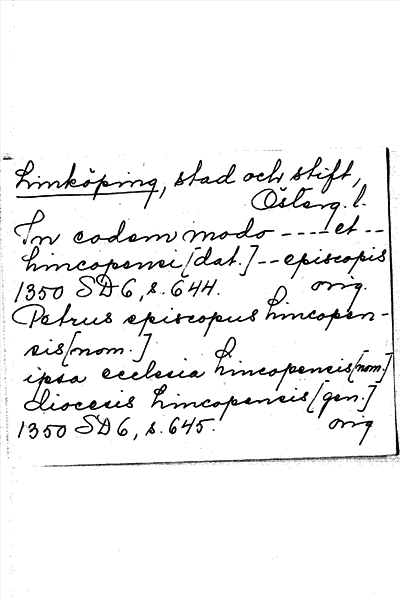 Linköping, stad och stift,
Österg. l.
In eodem modo ---- et --
Lincopensi [dat.] -- episcopis
1350 SD6, s. 644. orig.
Petrus episcopus Lincopen-
sis [nom.]
ipsa ecclesia Lincopensis [nom.]
diocesis Lincopensis [gen.]
1350 SD6, s. 645. orig